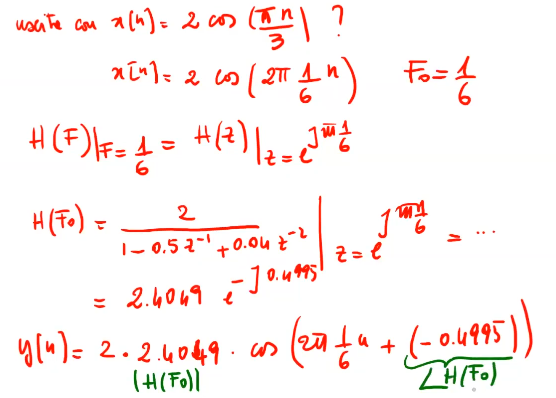 uscite con x[n] = 2 cos (πn/3) ?
x[n] = 2 cos (2π 1/6 n) F₀ = 1/6
H(F)|F = 1/6 = H(z)|z = e^(J2π 1/6)
H(F₀) = 2 / (1 - 0.5 z⁻¹ + 0.04 z⁻²) | z = e^(J2π 1/6) = ...
= 2.4049 e^(-J0.4995)
y[n] = 2 · 2.4049 · cos (2π 1/6 n + (-0.4995))
|H(F₀)| ∠H(F₀)